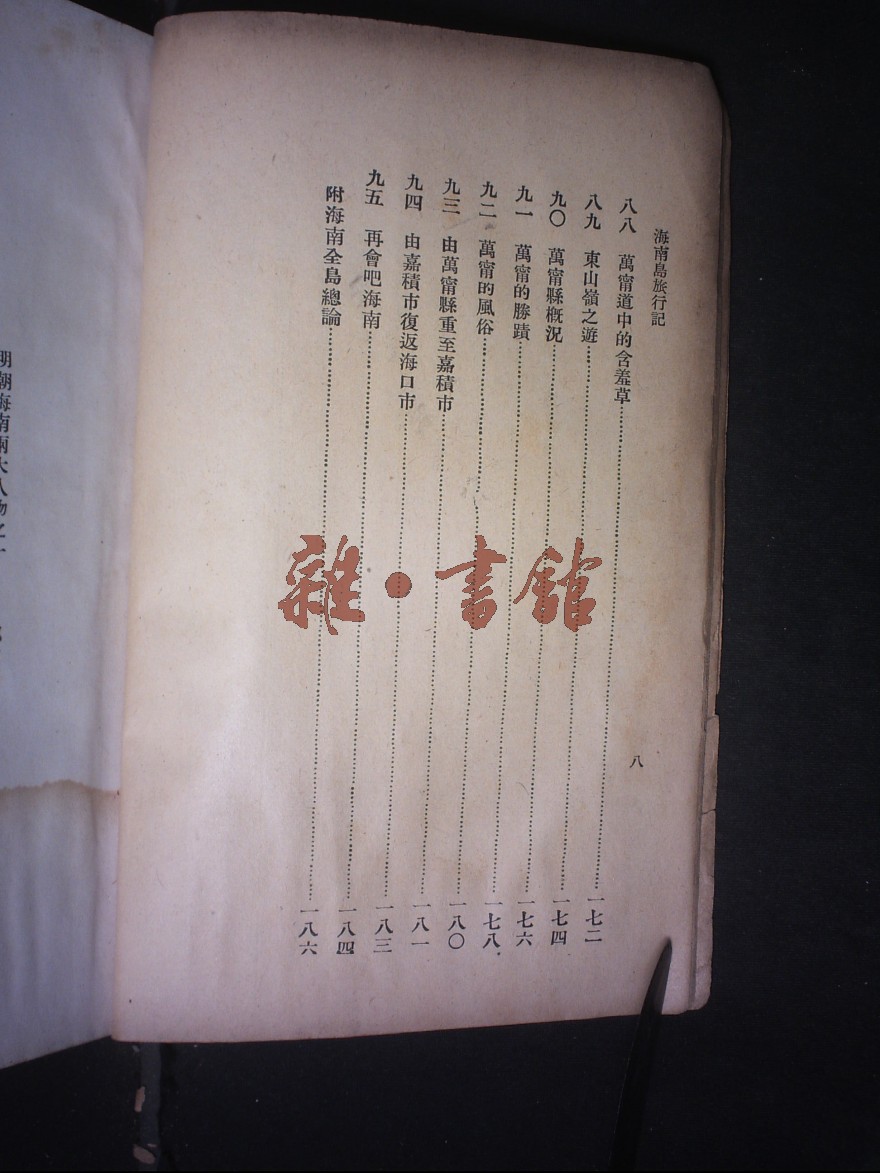 海南島旅行記
八
八八 萬甯道中的含羞草……一七二
八九 東山嶺之遊……一七四
九〇 萬甯縣概況……一七六
九一 萬甯的勝蹟……一七八
九二 萬甯的風俗……一八〇
九三 由萬甯縣重至嘉積市……一八一
九四 由嘉積市復返海口市……一八三
九五 再會吧海南……一八四
附海南全島總論……一八六
明朝海南兩大人物之一
雜·書館